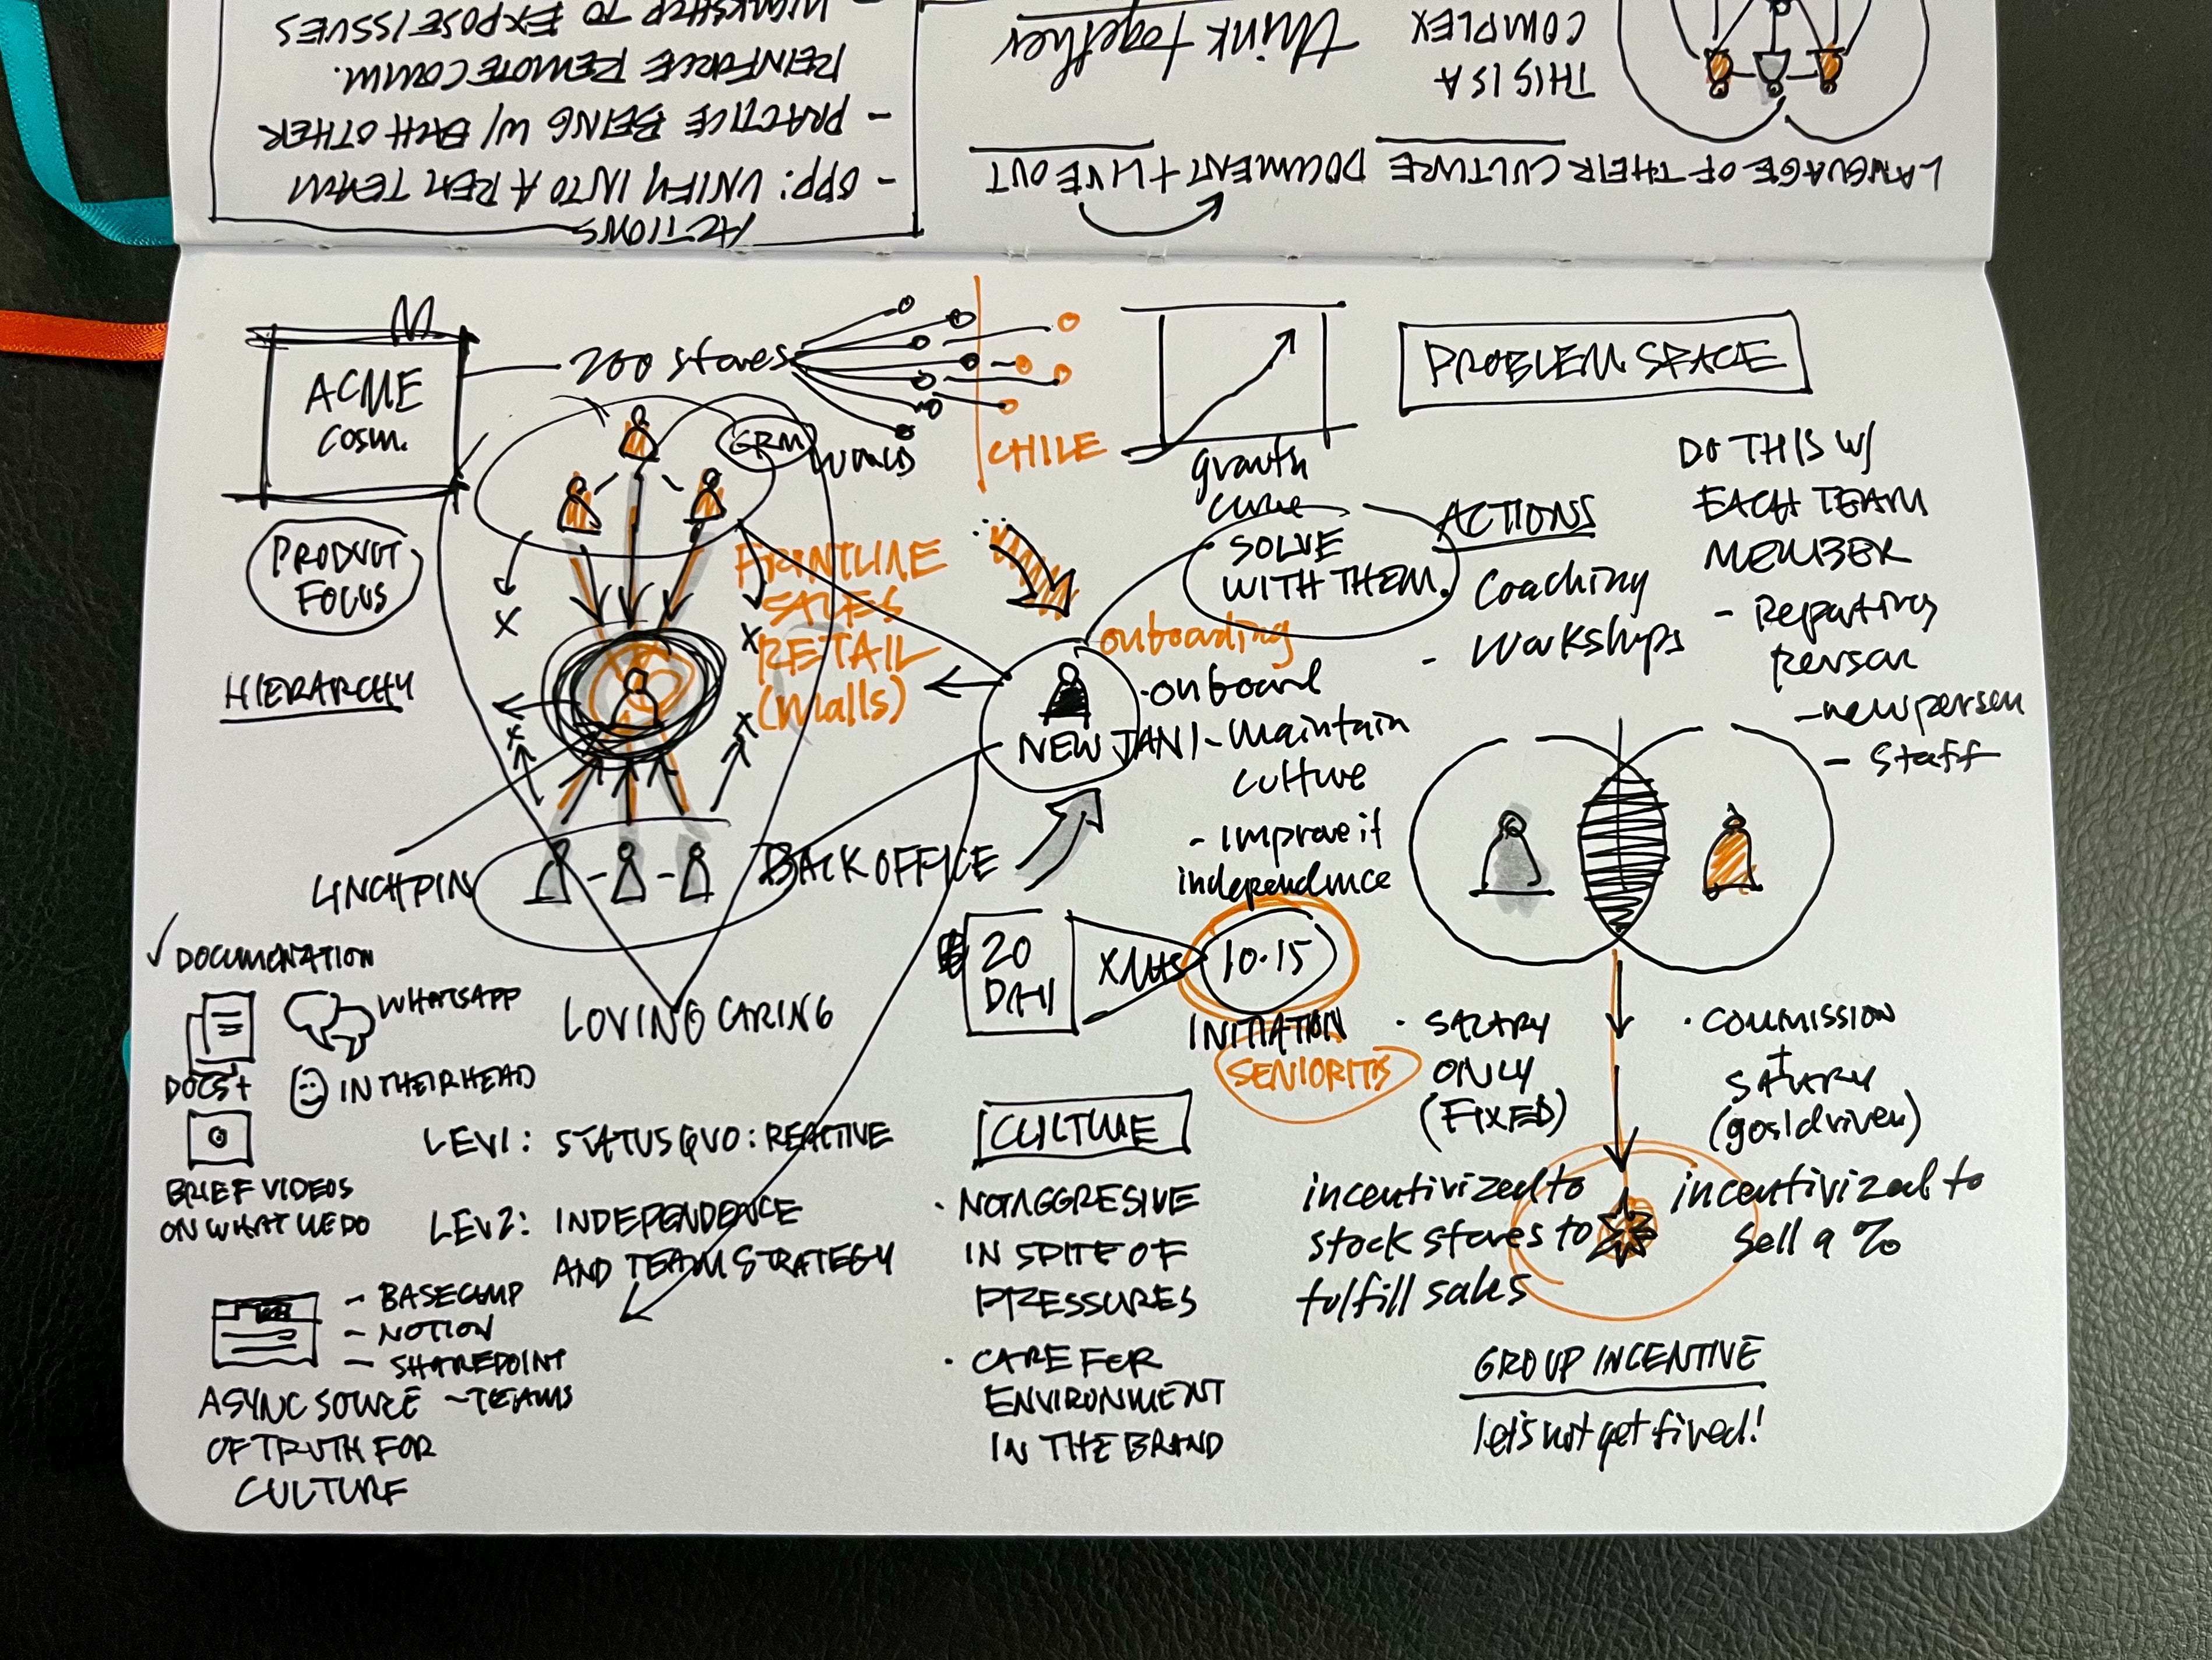 ACTIONS
- OPP: UNIFY INTO A REAL TEAM
- PRACTICE BEING W/ EACH OTHER
REINFORCE REMOTE COMM.
WORKSHOP TO EXPOSE ISSUES
LANGUAGE OF THEIR CULTURE DOCUMENT + LIVE OUT
THIS IS A
COMPLEX
think together
ACME
COSM.
200 stores
CHILE
growth
curve
PROBLEM SPACE
GRM
PRODUCT
FOCUS
HIERARCHY
FRONTLINE
SALES
RETAIL
(malls)
LINCHPIN
BACK OFFICE
LOVING CARING
SOLVE
WITH THEM.
ACTIONS
Coaching
- Workshops
DO THIS W/
EACH TEAM
MEMBER
- Reporting
person
- new person
- Staff
onboarding
NEW JANI
- onboard
- Maintain
culture
- Improve it
independence
20
10.15
INITIATION
SENIORITY
✓ DOCUMENTATION
DOCS +
WHATSAPP
IN THEIR HEAD
BRIEF VIDEOS
ON WHAT WE DO
- BASECAMP
- NOTION
- SHAREPOINT
- TEAMS
ASYNC SOURCE
OF TRUTH FOR
CULTURE
LEV1: STATUS QUO: REACTIVE
LEV2: INDEPENDENCE
AND TEAM STRATEGY
CULTURE
· NOT AGGRESIVE
IN SPITE OF
PRESSURES
· CARE FOR
ENVIRONMENT
IN THE BRAND
· SALARY
ONLY
(FIXED)
incentivized to
stock stores to
fulfill sales
· COMMISSION
+
SALARY
(goal driven)
incentivized to
sell a %
GROUP INCENTIVE
let's not get fired!